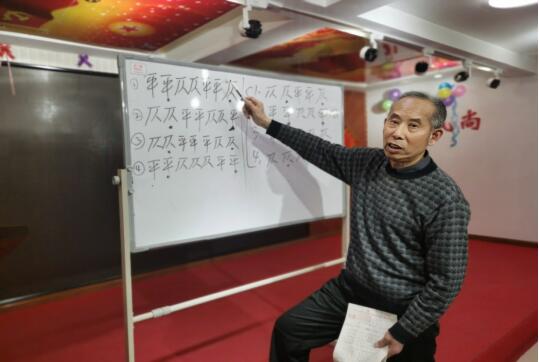 ① 平平仄仄平平仄
② 仄仄平平仄仄平
③ 仄仄平平平仄仄
④ 平平仄仄仄平平
1. 仄仄平平仄
4. 仄仄
尚